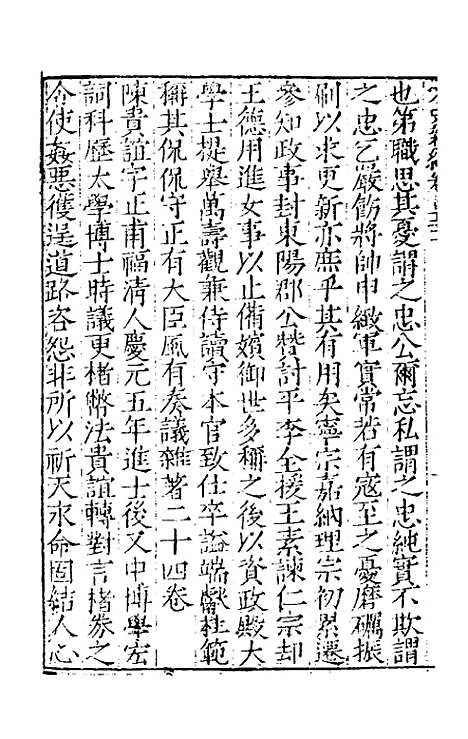 也第職思其憂謂之忠公爾忘私謂之忠純實不欺謂
之忠乞嚴飭將帥申緻軍實常若有寇至之憂磨礪振
刷以求更新亦庶乎其有用矣寧宗嘉納理宗初累遷
參知政事封東陽郡公贊討平李全援王素諫仁宗却
王德用進女事以止備嬪御世多稱之後以資政殿大
學士提舉萬壽觀兼侍讀守本官致仕卒謚端獻杜範
稱其侃侃守正有大臣風有奏議雜著二十四卷
陳貴誼字正甫福清人慶元五年進士後又中博學宏
詞科歷太學博士時議更楮幣法貴誼轉對言楮券之
令使姦惡獲逞道路咨怨非所以祈天永命固結人心